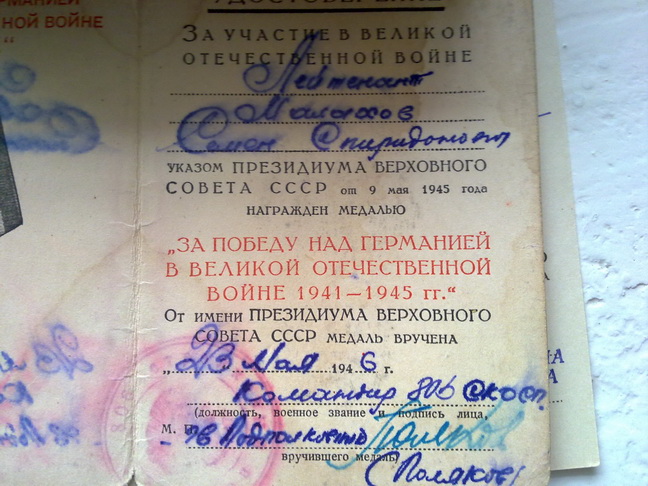 УДОСТОВЕРЕНИЕ
НОЙ ВОЙНЕ
ЗА УЧАСТИЕ В ВЕЛИКОЙ
ОТЕЧЕСТВЕННОЙ ВОЙНЕ
Лейтенант
Малахов
Семен Спиридонович
УКАЗОМ ПРЕЗИДИУМА ВЕРХОВНОГО
СОВЕТА СССР от 9 мая 1945 года
НАГРАЖДЕН МЕДАЛЬЮ
„ЗА ПОБЕДУ НАД ГЕРМАНИЕЙ
В ВЕЛИКОЙ ОТЕЧЕСТВЕННОЙ
ВОЙНЕ 1941—1945 гг.“
От имени ПРЕЗИДИУМА ВЕРХОВНОГО
СОВЕТА СССР МЕДАЛЬ ВРУЧЕНА
„23 Мая 1946 г.
Командир 806
(должность, военное звание и подпись лица,
М. П. Подполковник Поляков
вручившего медаль)
(Поляков)